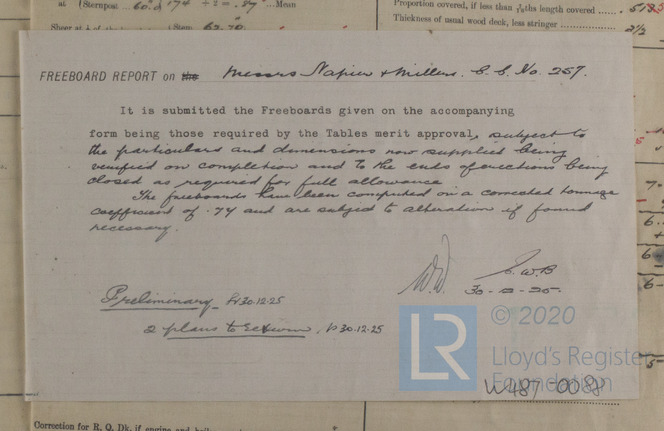 at (Sternpost ... 60.0 174 ÷ 2 = .87 ... Mean
Sheer at
Proportion covered, if less than 6/10ths length covered ......
Thickness of usual wood deck, less stringer
3½
FREEBOARD REPORT on the Messrs Napier & Millers. S.S. No. 257.
It is submitted the Freeboards given on the accompanying
form being those required by the Tables merit approval, subject to
the particulars and dimensions now supplied being
verified on completion and to the ends of erections being
closed as required for full allowance.
The freeboards have been computed on a corrected tonnage
coefficient of .74 and are subject to alteration if found
necessary.
W.D. S.W.B
30-12-25.
Preliminary 30.12.25
2 plans to 30.12.25
LR © 2020
Lloyd's Register
Foundation
W487-0088
Correction for R. Q. Dk. if engine and